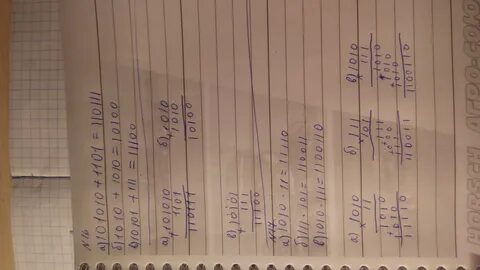 №16
а) 101010 + 1101 = 110111
б) 1010 + 1010 = 10100
в) 10101 + 111 = 11100
а) +101010
1101
110111
б) +1010
1010
10100
в) +10101
111
11100
№17
а) 1010 · 11 = 11110
б) 111 · 101 = 110011
в) 1010 · 111 = 1100110
а) ×1010
11
1010
+1010
11110
б) ×111
101
111
110011
в) ×1010
111
1010
+1010
+1010
1100110
HORSCH AGRO.COM